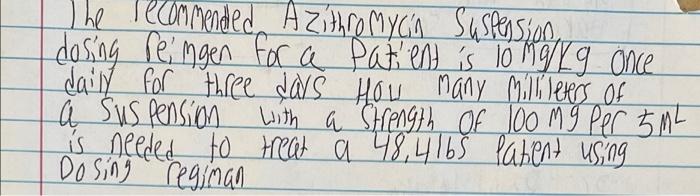 The recommended Azithromycin Suspension
dosing reimgen for a Patient is 10 mg/kg once
daily for three days How many Millileters of
a Suspension with a Strength of 100 mg Per 5 mL
is needed to treat a 48.4 lbs Patient using
Dosing regiman